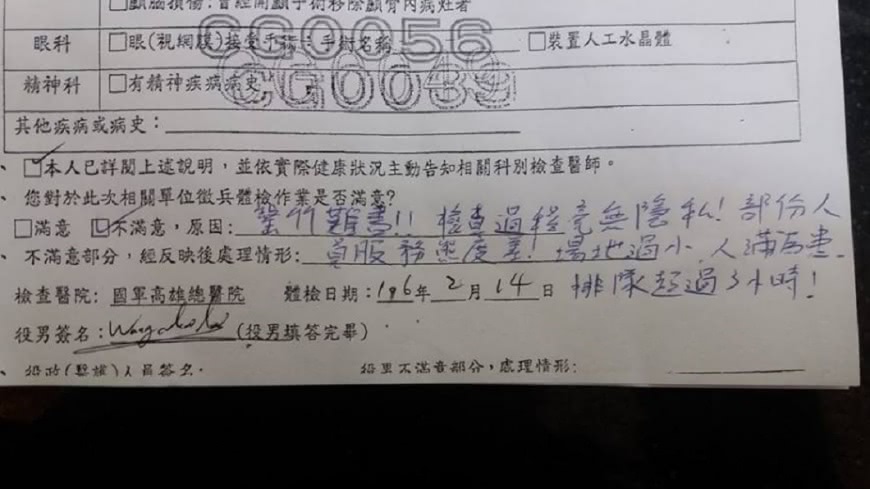 □顱腦損傷：曾經開顱手術移除顱骨內病灶者
眼科 □眼(視網膜)接受手術：手術名稱 □裝置人工水晶體
CG0056
精神科 □有精神疾病病史
CG0039
其他疾病或病史：
、☑本人已詳閱上述說明，並依實際健康狀況主動告知相關科別檢查醫師。
、您對於此次相關單位徵兵體檢作業是否滿意?
□滿意 ☑不滿意，原因：罄竹難書!! 檢查過程毫無隱私! 部份人
、不滿意部分，經反映後處理情形：員服務態度差! 場地過小 人滿為患.
檢查醫院：國軍高雄總醫院 體檢日期：106年2月14日 排隊超過3小時!
役男簽名：(役男填答完畢)
、役政(醫護)人員簽名： 役男不滿意部分，處理情形：